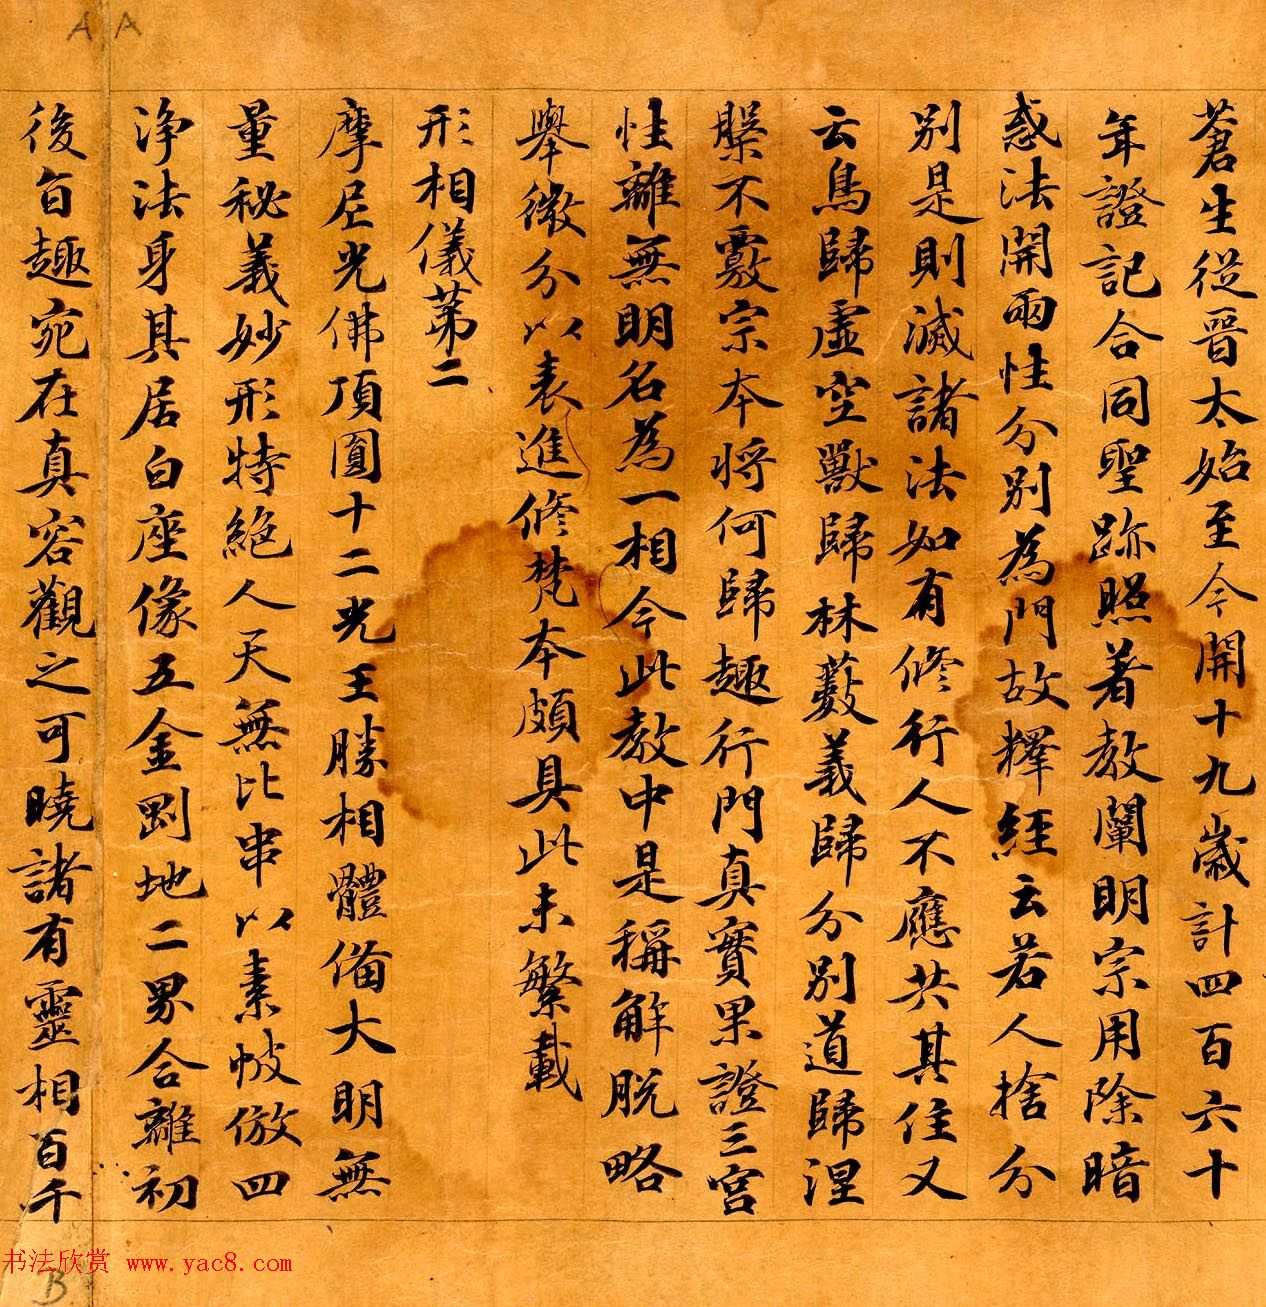 A A
蒼生從晉太始至今開十九歲計四百六十
年證記合同聖跡照著教闡明宗用除暗
惑法開兩性分別為門故釋經云若人捨分
別是則滅諸法如有修行人不應共其住又
云鳥歸虛空獸歸林藪義歸分別道歸涅
槃不覈宗本將何歸趣行門真實果證三宮
性離無明名為一相今此教中是稱解脫略
舉微分以表進修梵本頗具此未繁載
形相儀第二
摩尼光佛頂圓十二光王勝相體備大明無
量秘義妙形特絕人天無比串以素帔倣四
淨法身其居白座像五金剛地二界合離初
後旨趣宛在真容觀之可曉諸有靈相百千
书法欣赏 www.yac8.com
B